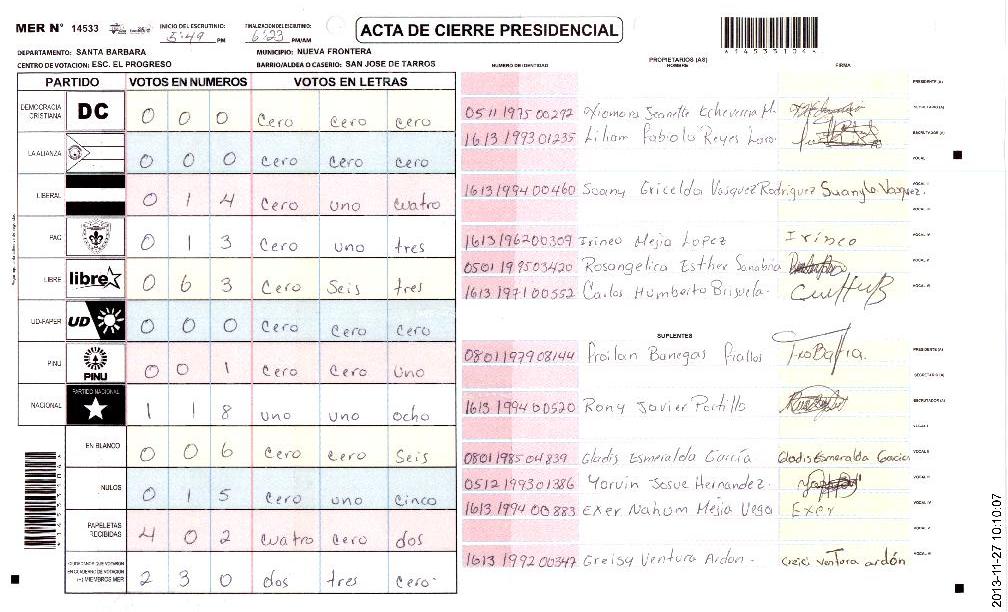 MER N° 14533 INICIO DEL ESCRUTINIO: 5:49 PM FINALIZACION ESCRUTINIO: 6:23 PM/AM
ACTA DE CIERRE PRESIDENCIAL
DEPARTAMENTO: SANTA BARBARA MUNICIPIO: NUEVA FRONTERA
CENTRO DE VOTACION: ESC. EL PROGRESO BARRIO/ALDEA O CASERIO: SAN JOSE DE TARROS
PARTIDO VOTOS EN NUMEROS VOTOS EN LETRAS
DEMOCRACIA CRISTIANA DC 0 0 0 Cero Cero Cero
LA ALIANZA 0 0 0 Cero Cero Cero
LIBERAL 0 1 4 Cero uno cuatro
PAC 0 1 3 Cero uno tres
LIBRE libre 0 6 3 Cero Seis tres
UD-FAPER UD 0 0 0 Cero Cero Cero
PINU PINU 0 0 1 Cero Cero uno
NACIONAL PARTIDO NACIONAL 1 1 8 uno uno ocho
EN BLANCO 0 0 6 Cero Cero Seis
NULOS 0 1 5 Cero uno Cinco
PAPELETAS RECIBIDAS 4 0 2 cuatro cero dos
CIUDADANOS QUE VOTARON EN CUADERNO DE VOTACION (+) MIEMBROS MER 2 3 0 dos tres cero
NUMERO DE IDENTIDAD PROPIETARIOS (AS) NOMBRE FIRMA
PRESIDENTE (A)
0511 1975 00292 Xiomara Jeanette Echeverria M. SECRETARIO (A)
1613 1993 01235 Reyes ESCRUTADOR (A)
VOCAL
1613 1994 00460 Suany Gricelda Vasquez Rodriguez VOCAL II
VOCAL III
1613 1962 00309 Irineo Mejia Lopez Irineo VOCAL IV
0501 1995 03420 Rosangelica Esther Sanabria VOCAL V
1613 1971 00552 Carlos Humberto Brisuela VOCAL VI
SUPLENTES
0801 1979 08144 Froilan Banegas PRESIDENTE (A)
SECRETARIO (A)
1613 1994 00520 Rony Javier Portillo ESCRUTADOR (A)
VOCAL I
0801 1985 04839 Gladis Esmeralda García Gladis Esmeralda Garcia VOCAL II
0512 1993 01386 Yorvin Josue Hernandez VOCAL III
1613 1994 00883 Exer Nahum Mejia Vega Exer VOCAL IV
VOCAL V
1613 1992 00347 Greisy Ventura Ardon ventura ardón VOCAL VI
2013-11-27 10:10:07